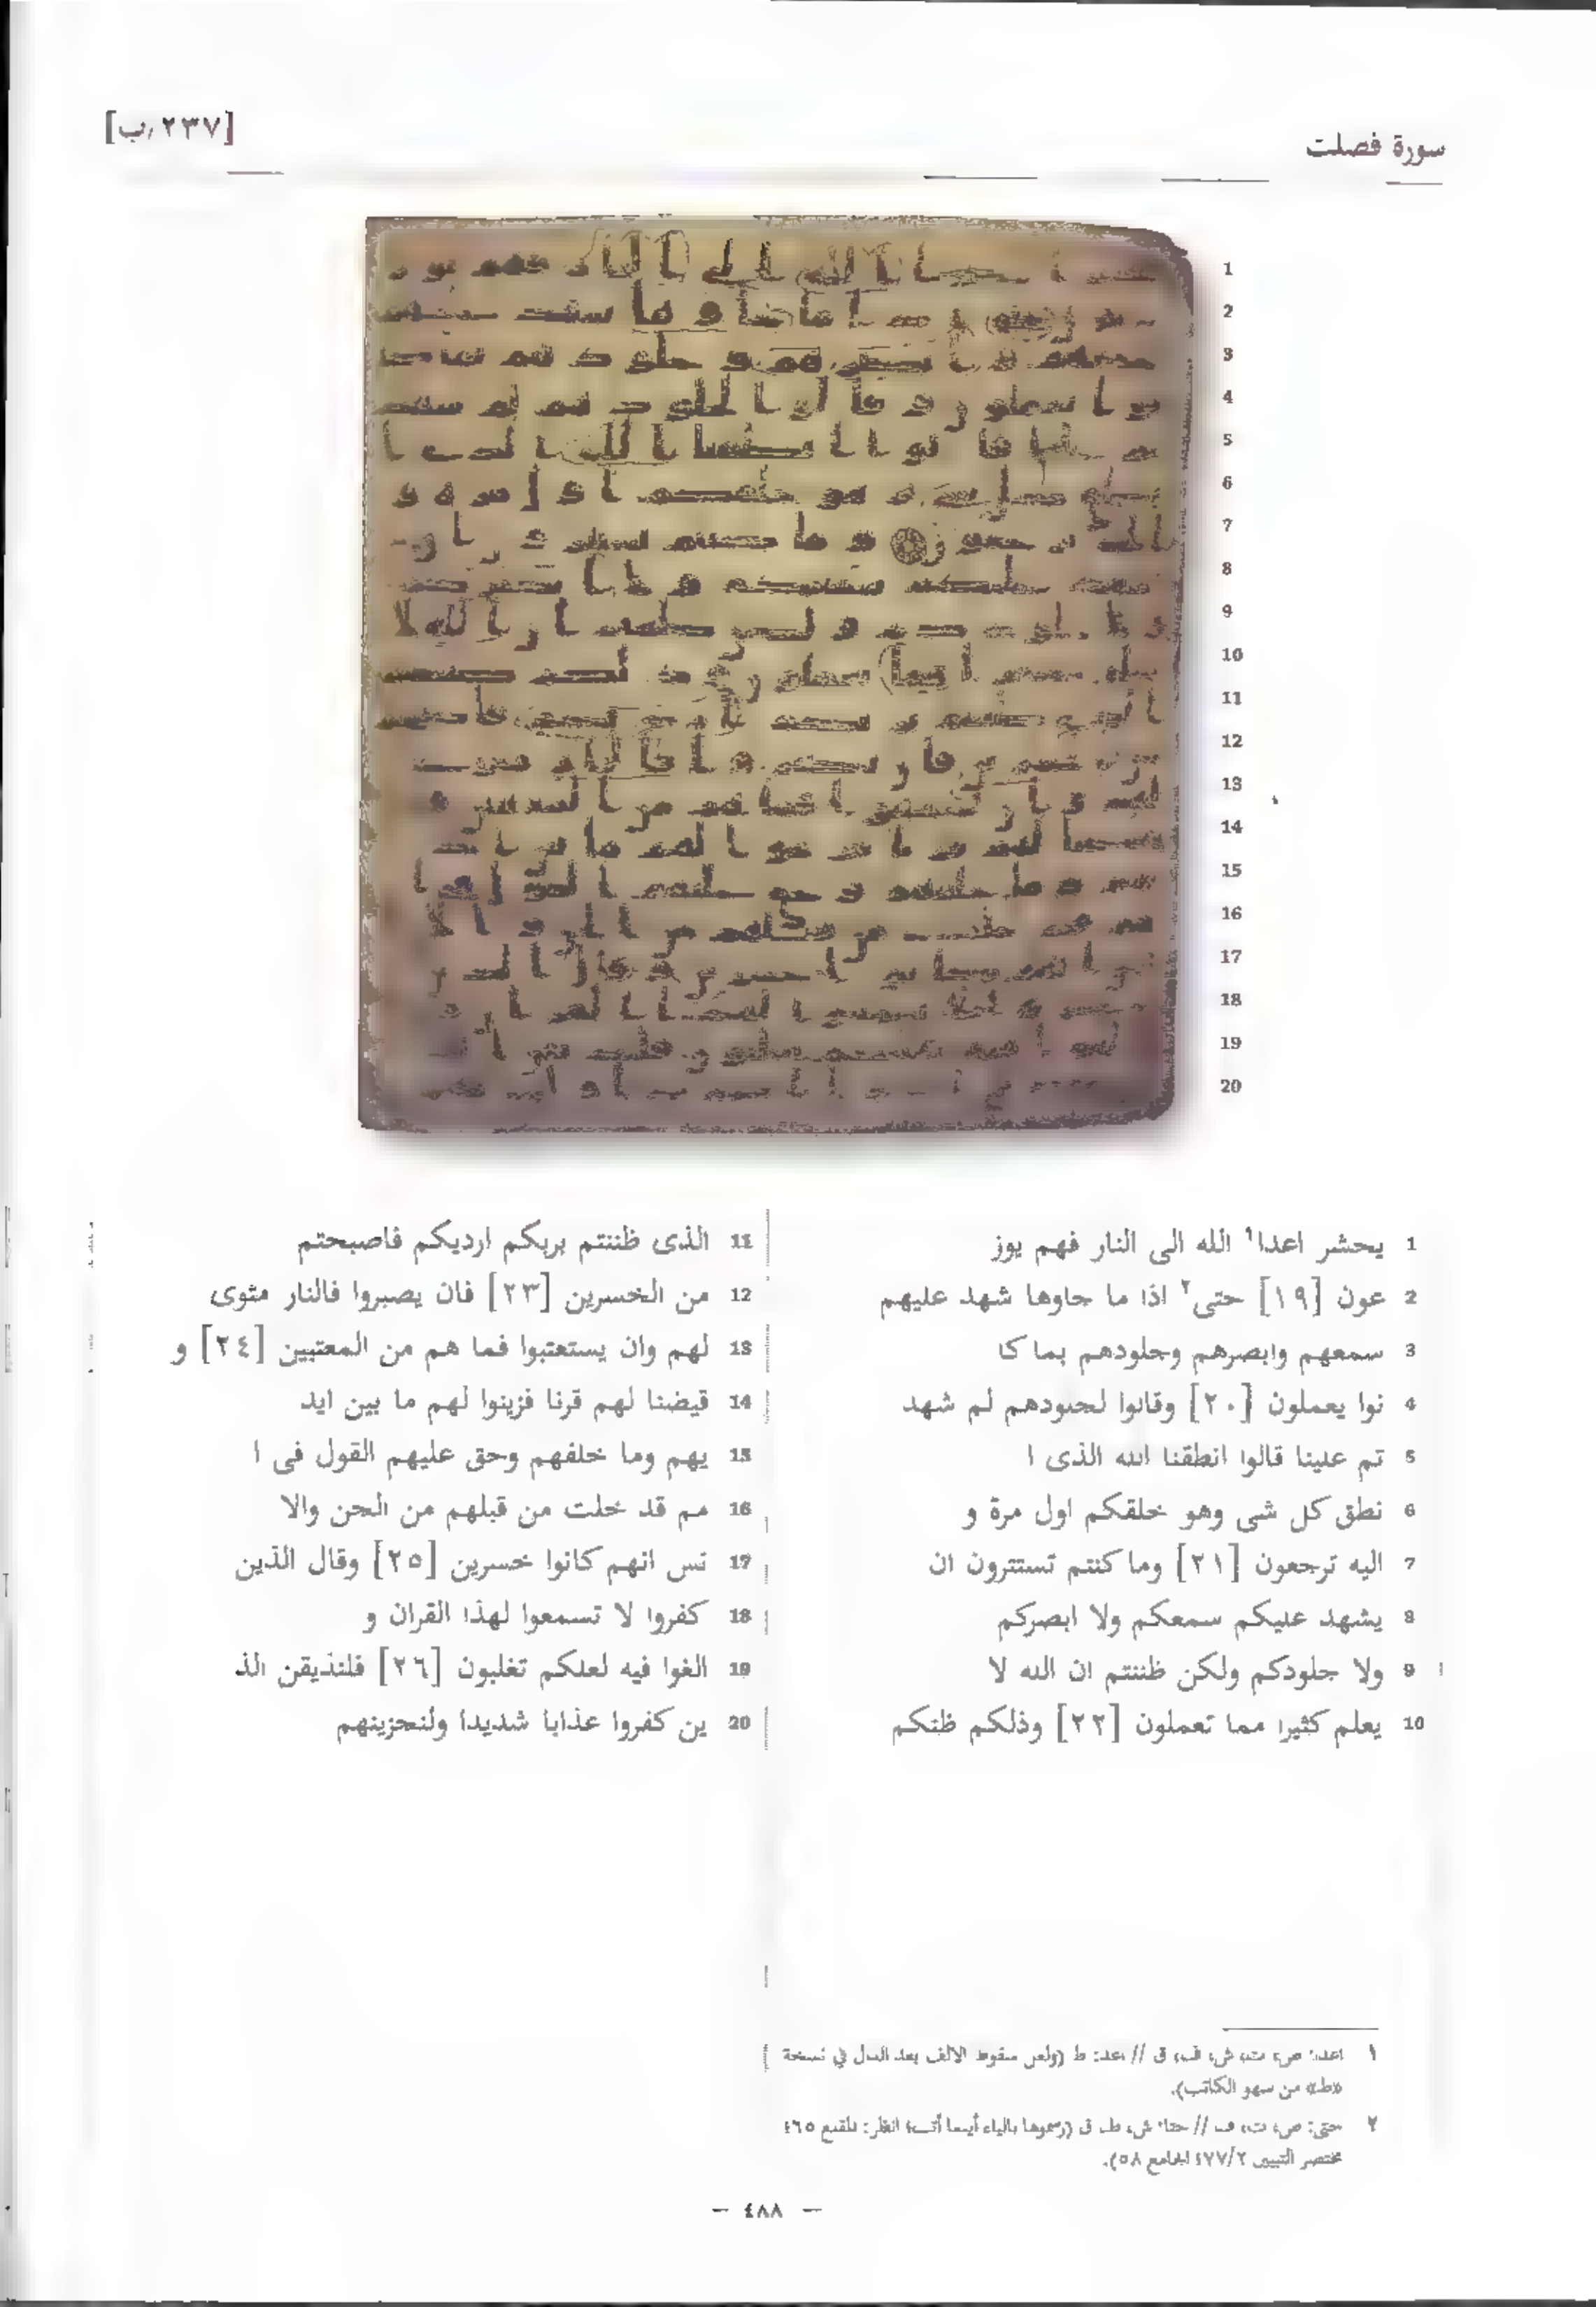 سورة فصلت
[٢٣٧/ب]
1 يحشر اعدا١ الله الى النار فهم يوز
2 عون [١٩] حتى٢ اذا ما جاوها شهد عليهم
3 سمعهم وابصرهم وجلودهم بما كا
4 نوا يعملون [٢٠] وقالوا لجلودهم لم شهد
5 تم علينا قالوا انطقنا الله الذى ا
6 نطق كل شى وهو خلقكم اول مرة و
7 اليه ترجعون [٢١] وما كنتم تستترون ان
8 يشهد عليكم سمعكم ولا ابصركم
9 ولا جلودكم ولكن ظننتم ان الله لا
10 يعلم كثيرا مما تعملون [٢٢] وذلكم ظنكم
11 الذى ظننتم بربكم ارديكم فاصبحتم
12 من الخسرين [٢٣] فان يصبروا فالنار مثوى
13 لهم وان يستعتبوا فما هم من المعتبين [٢٤] و
14 قيضنا لهم قرنا فزينوا لهم ما بين ايد
15 يهم وما خلفهم وحق عليهم القول فى ا
16 مم قد خلت من قبلهم من الجن والا
17 نس انهم كانوا خسرين [٢٥] وقال الذين
18 كفروا لا تسمعوا لهذا القران و
19 الغوا فيه لعلكم تغلبون [٢٦] فلنذيقن الذ
20 ين كفروا عذابا شديدا ولنجزينهم
١ اعدا: ص، ت، ش، ف، ق // اعد: ط (ولعل سقوط الالف بعد الدال في نسخة
«ط» من سهو الكاتب).
٢ حتى: ص، ت، ف // حتا: ش، ط، ق (رسموها بالياء أينما أتت؛ انظر: المقنع ٤٦٥
مختصر التبيين ٧٧/٢؛ الجامع ٥٨).
– ٤٨٨ –